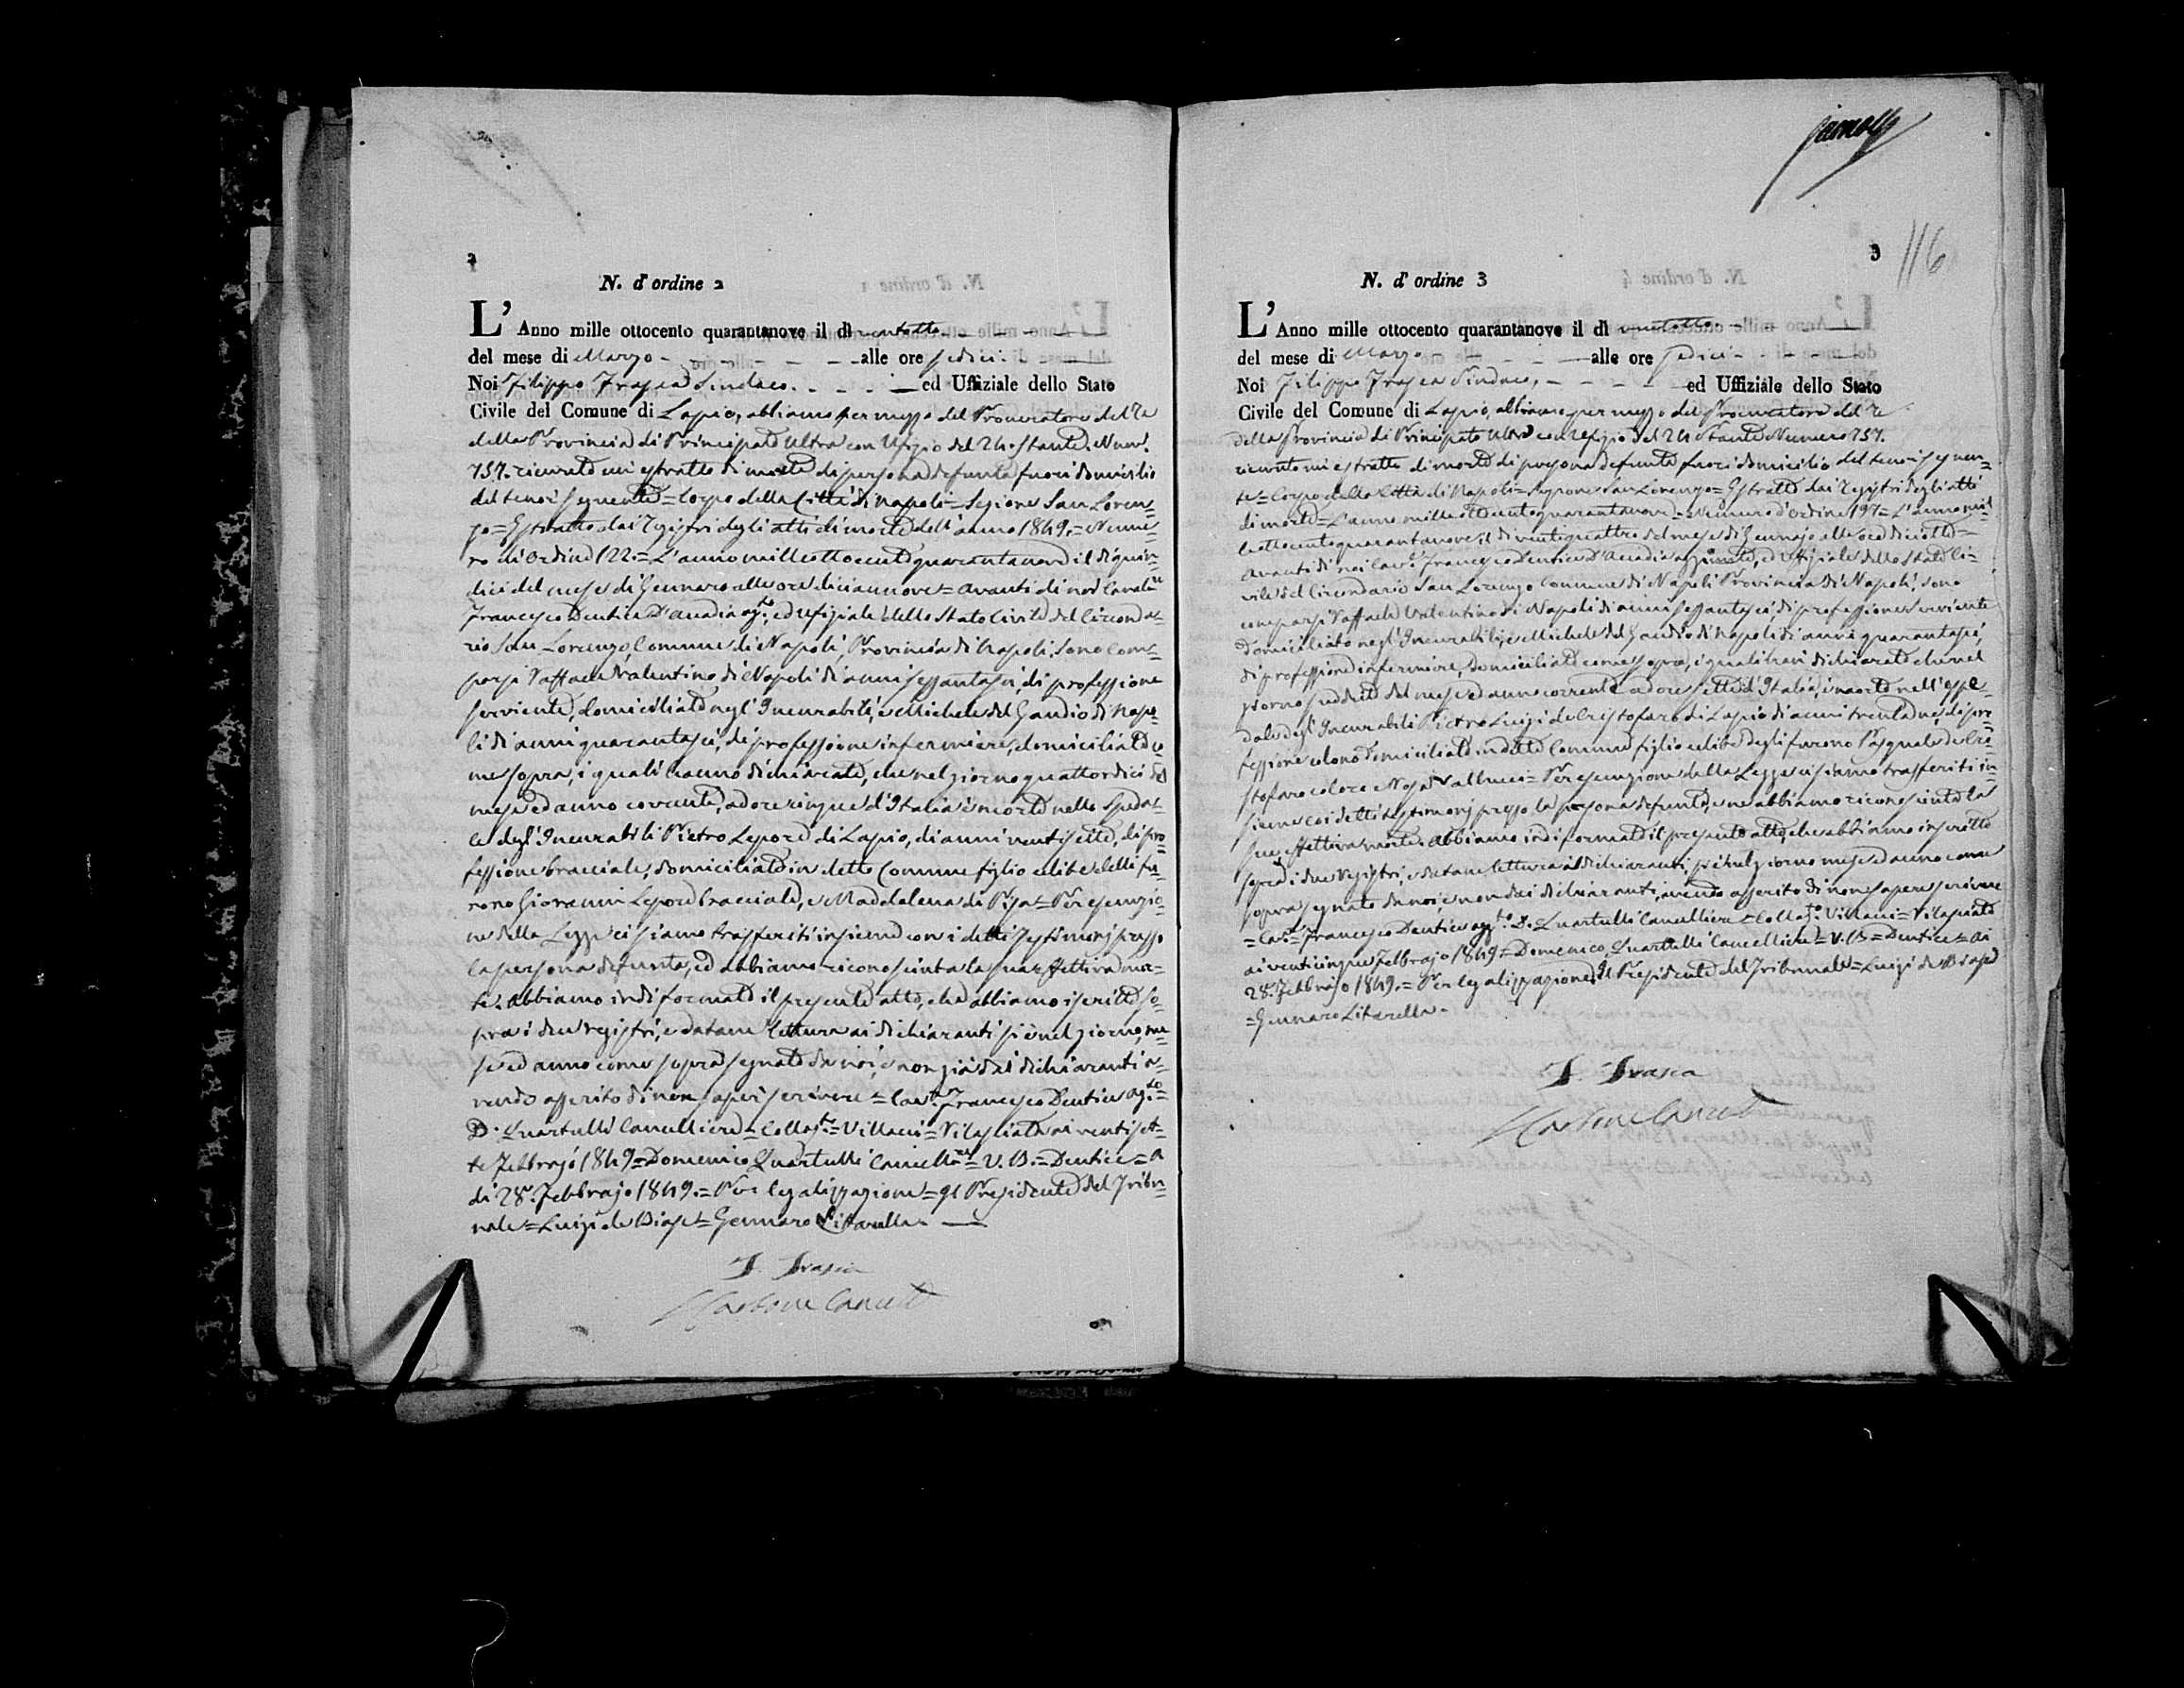 2
N. d'ordine 2
L'Anno mille ottocento quarantanove il dì ventotto
del mese di Marzo alle ore sedici
Noi Filippo Frasca Sindaco ed Uffiziale dello Stato
Civile del Comune di Lapio, abbiamo per mezzo del Procuratore del Re
della Provincia di Principato Ultra con Ufizio del 24 stante Num.
757. ricevuto un estratto di morte di persona defunta fuori domicilio
del tenor seguente = Corpo della Città di Napoli = Sezione San Loren=
zo = Estratto dai Registri degli atti di morte dell'anno 1849. = Nume=
ro di Ordine 122. = L'anno mille ottocento quarantanove il dì quin=
dici del mese di Gennaro alle ore diciannove = avanti di noi Cavalre
Francesco Dentice D'Accadia agto, ed ufiziale dello Stato Civile del Circonda=
rio San Lorenzo, Comune di Napoli, Provincia di Napoli, sono com=
parsi Raffaele Valentino di Napoli di anni sessantasei, di professione
serviente, domiciliato negl'Incurabili, e Michele del Gaudio di Napo=
li di anni quarantasei, di professione infermiere, domiciliato co=
me sopra, i quali hanno dichiarato, che nel giorno quattordici del
mese ed anno corrente, ad ore cinque d'Italia è morto nello Speda=
le degl'Incurabili Pietro Lepore di Lapio, di anni ventisette, di pro=
fessione bracciale, domiciliato in detto Comune figlio celibe delli fu=
rono Giovanni Lepore bracciale, e Maddalena di Pisa = Per esecuzio=
ne della Legge ci siamo trasferiti insieme con i detti Testimonj presso
la persona defunta, ed abbiamo riconosciuta la sua effettiva mor=
te. Abbiamo indi formato il presente atto, che abbiamo iscritto so=
pra i due registri, e datane lettura ai dichiaranti si è nel giorno, me=
se ed anno come sopra segnato da noi, e non già dai dichiaranti a=
vendo asserito di non saper scrivere = Cavre Francesco Dentice agto =
D. Quartulli Cancelliere = Collazto = Villacci = Rilasciato ai ventiset=
te Febbrajo 1849 = Domenico Quartulli Cancellre = V. B. = Dentice = A
di 28. Febbrajo 1849. = Per legalizzazione = Il Presidente del Tribu=
nale = Luigi de Biase = Gennaro Litarella.
F. Frasca
3
116
N. d'ordine 3
L'Anno mille ottocento quarantanove il dì ventotto
del mese di Marzo alle ore sedici
Noi Filippo Frasca Sindaco, ed Uffiziale dello Stato
Civile del Comune di Lapio, abbiamo per mezzo del Procuratore del Re
della Provincia di Principato Ultra con Ufizio del 24 stante Numero 757.
ricevuto un estratto di morte di persona defunta fuori domicilio del tenor seguen=
te = Corpo della Città di Napoli = Sezione San Lorenzo = Estratto dai Registri degli atti
di morte = L'anno mille ottocento quarantanove = Numero d'ordine 197 = L'anno mil=
le ottocento quarantanove, il dì ventiquattro del mese di Gennajo alle ore diciotto =
Avanti di noi Cavr Francesco Dentice D'Accadia aggiunto, ed Uffiziale dello Stato Ci=
vile del Circondario San Lorenzo Comune di Napoli Provincia di Napoli, sono
comparsi Raffaele Valentino di Napoli di anni sessantasei, di professione Serviente
domiciliato negl'Incurabili, e Michele del Gaudio di Napoli di anni quarantasei,
di professione infermiere, domiciliato come sopra, i quali han dichiarato che nel
giorno suddetto del mese ed anno corrente ad ore sette d'Italia, è morto nell'Ospe=
dale degl'Incurabili Pietro Luigi de Cristofaro di Lapio di anni trentadue, di pro=
fessione colono domiciliato in detto Comune figlio celibe degli furono Pasquale de Cri=
stofaro colono e Rosa Vallucci = Per esecuzione della Legge ci siamo trasferiti in=
sieme coi detti testimonj presso la persona defunta, e ne abbiamo riconosciuta la
sua effettiva morte. Abbiamo indi formato il presente atto, che abbiamo inscritto
sopra i due Registri, e datane lettura ai dichiaranti, si è nel giorno mese ed anno come
sopra segnato da noi, e non dai dichiaranti, avendo asserito di non sapere scrivere
= Cavre Francesco Dentice aggto D. Quartulli Cancelliere = Collazto Villacci = Rilasciato
ai venticinque Febbrajo 1849 = Domenico Quartulli Cancelliere = V. B. = Dentice = Ai
28. Febbrajo 1849. = Per legalizzazione. Il Presidente del Tribunale = Luigi de Biase
= Gennaro Litarella.
F. Frasca